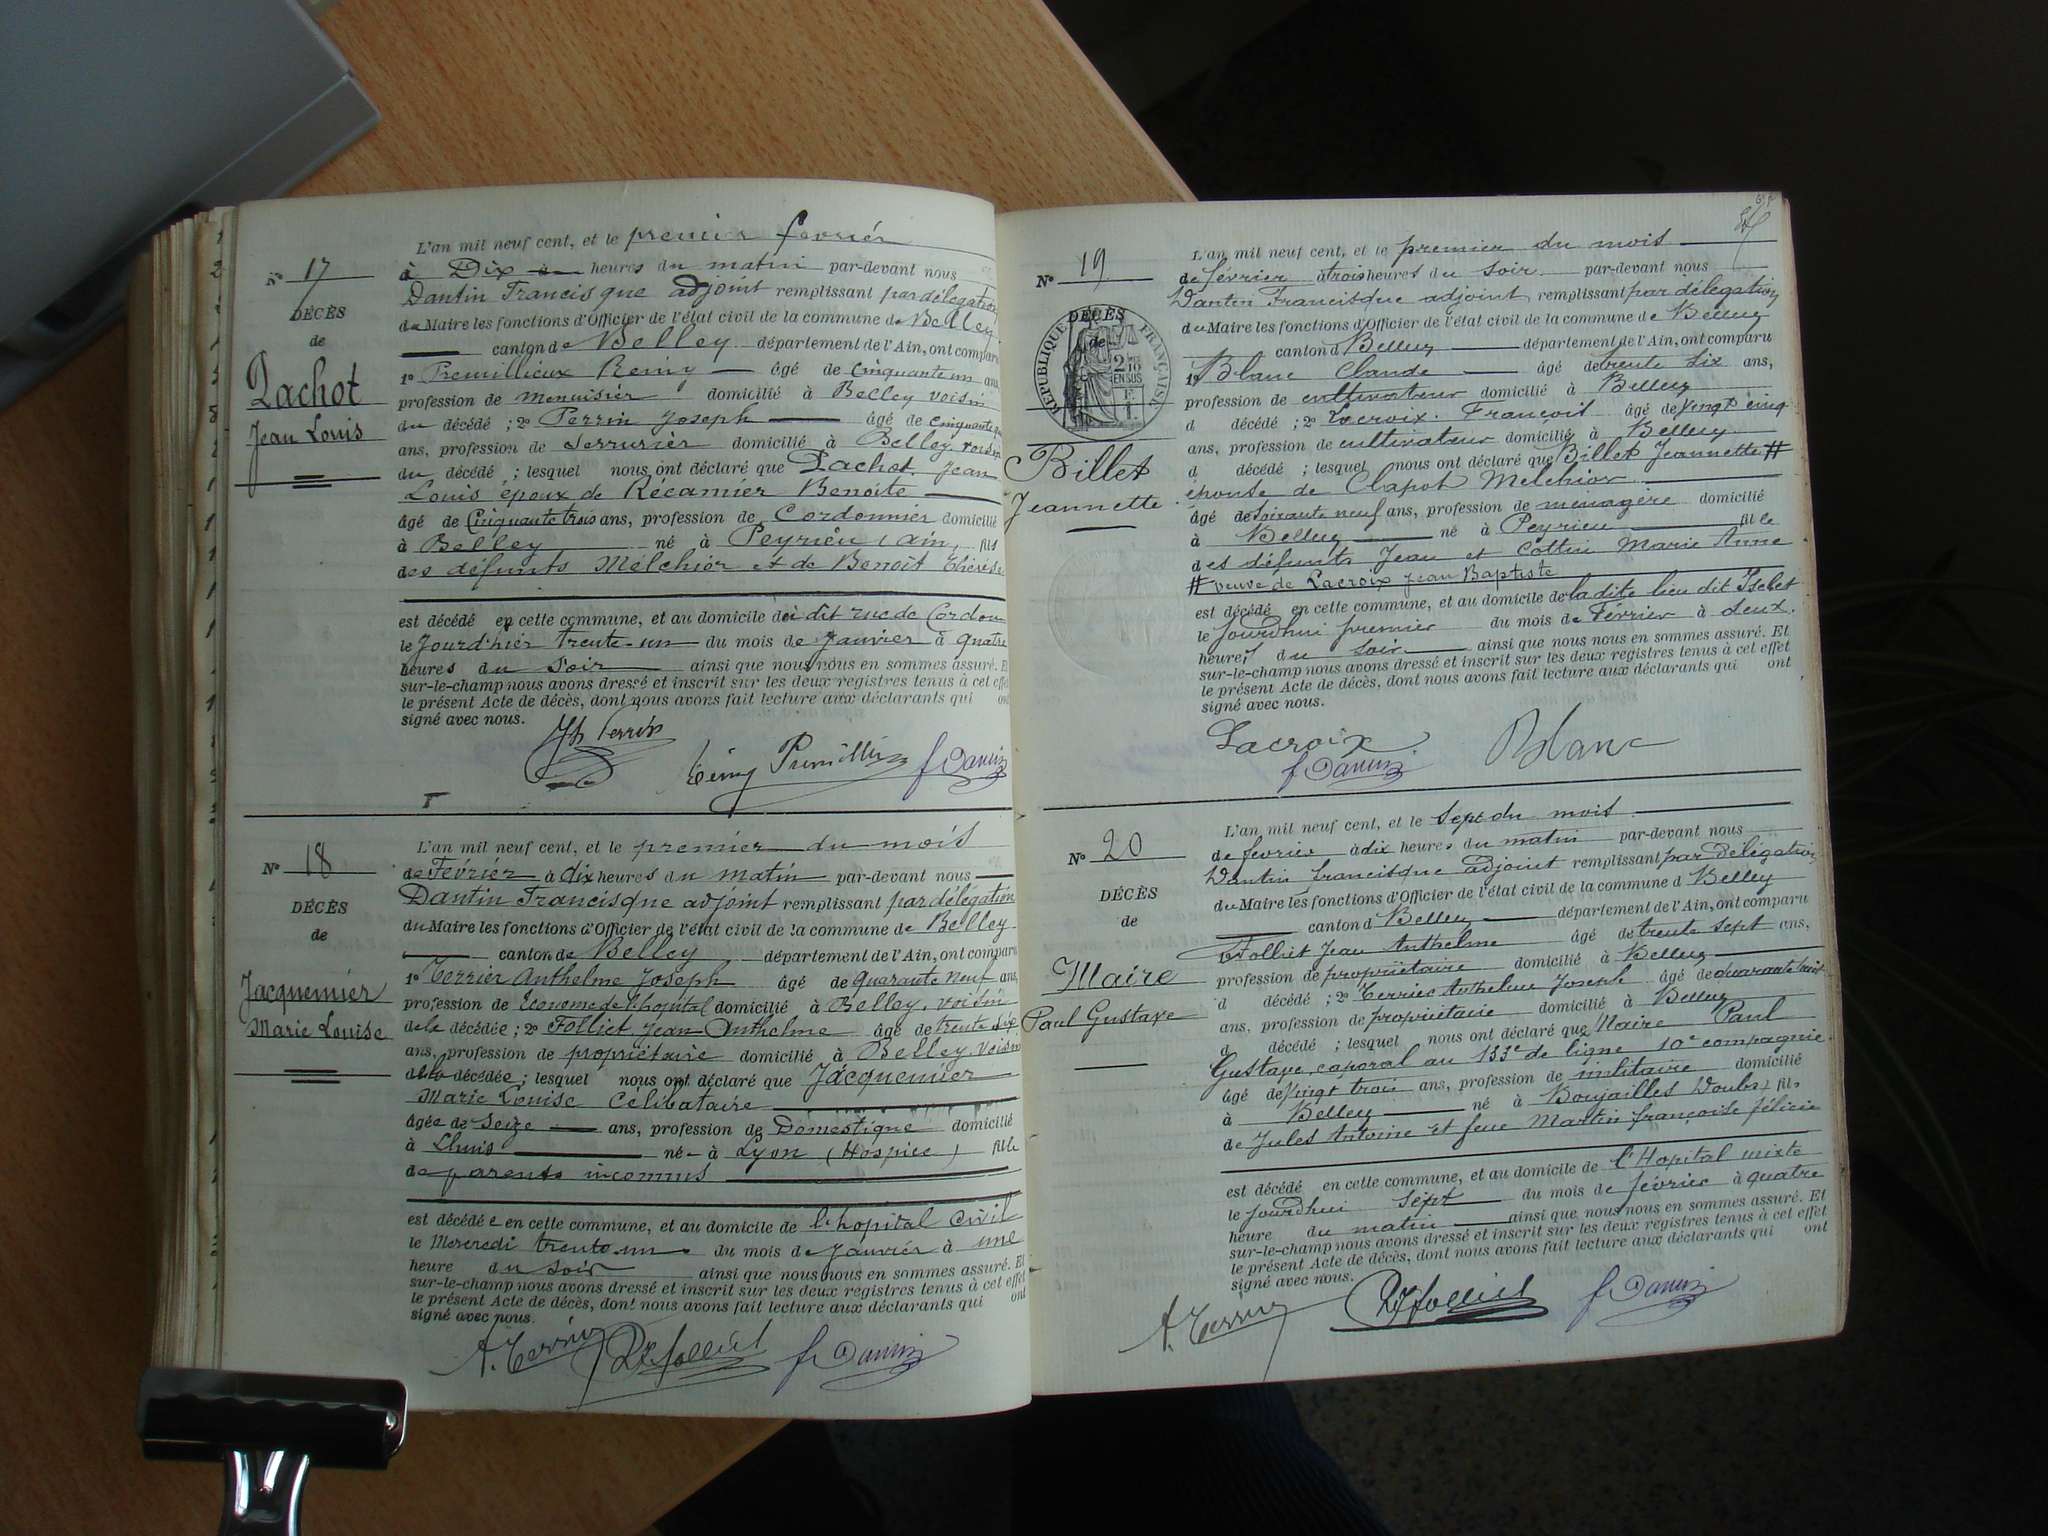 N° 17
DÉCÈS
de
Pachot
Jean Louis
L'an mil neuf cent, et le premier février
à Dix heures du matin par-devant nous
Dantin Francisque adjoint remplissant par délégation
du Maire les fonctions d'Officier de l'état civil de la commune de Belley
canton de Belley département de l'Ain, ont comparu
1° Premillieux Remy âgé de cinquante un ans
profession de menuisier domicilié à Belley voisin
du décédé ; 2° Perrin Joseph âgé de cinquante
ans, profession de Serrurier domicilié à Belley voisin
du décédé ; lesquel nous ont déclaré que Pachot Jean
Louis époux de Récamier Benoîte
âgé de Cinquante trois ans, profession de Cordonnier domicilié
à Belley né à Peyrieu (Ain) fils
des défunts Melchior et de Benoit Thérèse
est décédé en cette commune, et au domicile dit rue de Cordon
le Jourd'hier trente-un du mois de Janvier à quatre
heures du soir ainsi que nous nous en sommes assuré. Et
sur-le-champ nous avons dressé et inscrit sur les deux registres tenus à cet effet
le présent Acte de décès, dont nous avons fait lecture aux déclarants qui ont
signé avec nous.
Jh Perrin Rémy Premillieux f Dantin
N° 18
DÉCÈS
de
Jacquemier
Marie Louise
L'an mil neuf cent, et le premier du mois
de Février à dix heures du matin par-devant nous
Dantin Francisque adjoint remplissant par délégation
du Maire les fonctions d'Officier de l'état civil de la commune de Belley
canton de Belley département de l'Ain, ont comparu
1° Terrier Anthelme Joseph âgé de quarante neuf ans,
profession de Econome de l'hopital domicilié à Belley, voisin
de la décédée ; 2° Folliet Jean Anthelme âgé de trente six
ans, profession de propriétaire domicilié à Belley, voisin
de la décédée ; lesquel nous ont déclaré que Jacquemier
Marie Louise Célibataire
âgée de seize ans, profession de Domestique domicilié
à Lhuis né à Lyon (Hospice) fille
de parents inconnus
est décédée en cette commune, et au domicile de l'hopital Civil
le Mercredi trente un du mois de Janvier à une
heure du soir ainsi que nous nous en sommes assuré. Et
sur-le-champ nous avons dressé et inscrit sur les deux registres tenus à cet effet
le présent Acte de décès, dont nous avons fait lecture aux déclarants qui ont
signé avec nous.
A. Terrier Folliet f Dantin
N° 19
DÉCÈS
de
RÉPUBLIQUE FRANÇAISE
2/10 EN SUS
Billet
Jeannette
L'an mil neuf cent, et le premier du mois
de février à trois heures du soir par-devant nous
Dantin Francisque adjoint remplissant par délégation
du Maire les fonctions d'Officier de l'état civil de la commune de Belley
canton d Belley département de l'Ain, ont comparu
1° Blanc Claude âgé de trente six ans,
profession de cultivateur domicilié à Belley
d décédé ; 2° Lacroix François âgé de vingt cinq
ans, profession de cultivateur domicilié à Belley
d décédé ; lesquel nous ont déclaré que Billet Jeannette #
épouse de Clapot Melchior
âgé de soixante neuf ans, profession de ménagère domicilié
à Belley né à Peyrieu fille
des défunts Jean et Cottin Marie Anne
# veuve de Lacroix Jean Baptiste
est décédé en cette commune, et au domicile de la dite lieu dit
le jourdhui premier du mois de Février à deux
heures du soir ainsi que nous nous en sommes assuré. Et
sur-le-champ nous avons dressé et inscrit sur les deux registres tenus à cet effet
le présent Acte de décès, dont nous avons fait lecture aux déclarants qui ont
signé avec nous.
Lacroix Blanc
f Dantin
N° 20
DÉCÈS
de
Maire
Paul Gustave
L'an mil neuf cent, et le sept du mois
de fevrier à dix heures du matin par-devant nous
Dantin francisque adjoint remplissant par Délégation
du Maire les fonctions d'Officier de l'état civil de la commune d Belley
canton d Belley département de l'Ain, ont comparu
Folliet Jean Anthelme âgé de trente sept ans,
profession de propriétaire domicilié à Belley
d décédé ; 2° Terrier Anthelme Joseph âgé de quarante huit
ans, profession de propriétaire domicilié à Belley
d décédé ; lesquel nous ont déclaré que Maire Paul
Gustave, caporal au 133e de ligne 10e compagnie
âgé de vingt trois ans, profession de militaire domicilié
à Belley né à Boujailles (Doubs) fils
de Jules Antoine et feue Martin françoise félicie
est décédé en cette commune, et au domicile de l'Hopital mixte
le jourdhui sept du mois de février à quatre
heure du matin ainsi que nous nous en sommes assuré. Et
sur-le-champ nous avons dressé et inscrit sur les deux registres tenus à cet effet
le présent Acte de décès, dont nous avons fait lecture aux déclarants qui ont
signé avec nous.
A. Terrier Folliet f Dantin